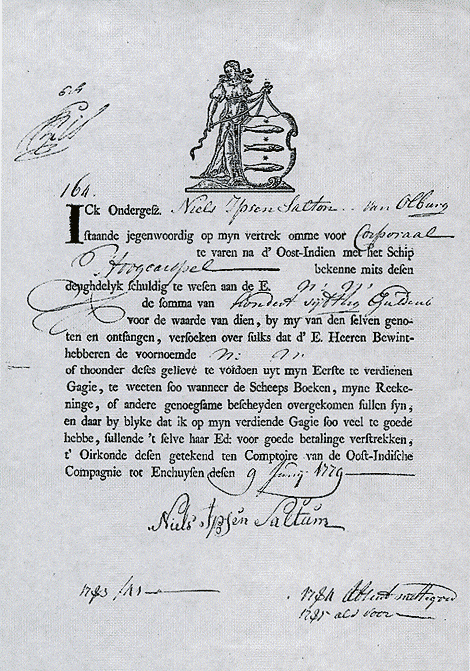 164.
ICk Ondergesz. Niels Ipsen Salton van Olburg
staande jegenwoordig op myn vertrek omme voor Corporaal
te varen na d' Oost-Indien met het Schip
Hoogcarspel bekenne mits desen
deughdelyk schuldig te wesen aan de E. N: N:
de somma van hondert vijfftig Guldens
voor de waarde van dien, by my van den selven geno-
ten en ontfangen, versoeken over sulks dat d' E. Heeren Bewint-
hebberen de voornoemde N: N:
of thoonder deses gelievé te voldoen uyt myn Eerste te verdienen
Gagie, te weeten soo wanneer de Scheeps Boeken, myne Reeke-
ninge, of andere genoegsame bescheyden overgekomen sullen syn,
en daar by blyke dat ik op myn verdiende Gagie soo veel te goede
hebbe, sullende 't selve haar Ed: voor goede betalinge verstrekken,
t' Oirkonde desen getekent ten Comptoire van de Oost-Indische
Compagnie tot Enchuysen desen 9 Juny 1779
Niels Ipsen Saltum
1783 /41
1784 Absent
1785 als voor